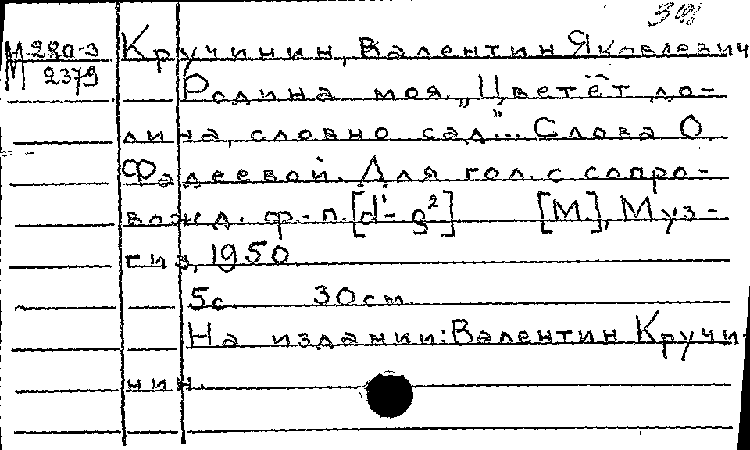 М 280-3 Кручинин, Валентин Яковлевич
М 2379
Родина моя. „Цветёт до-
лина, словно сад"... Слова О.
Фадеевой. Для гол. с сопро-
вожд. ф-п. [d¹-g²] [М], Муз-
гиз, 1950.
5с. 30см.
На издании: Валентин Кручи-
нин.